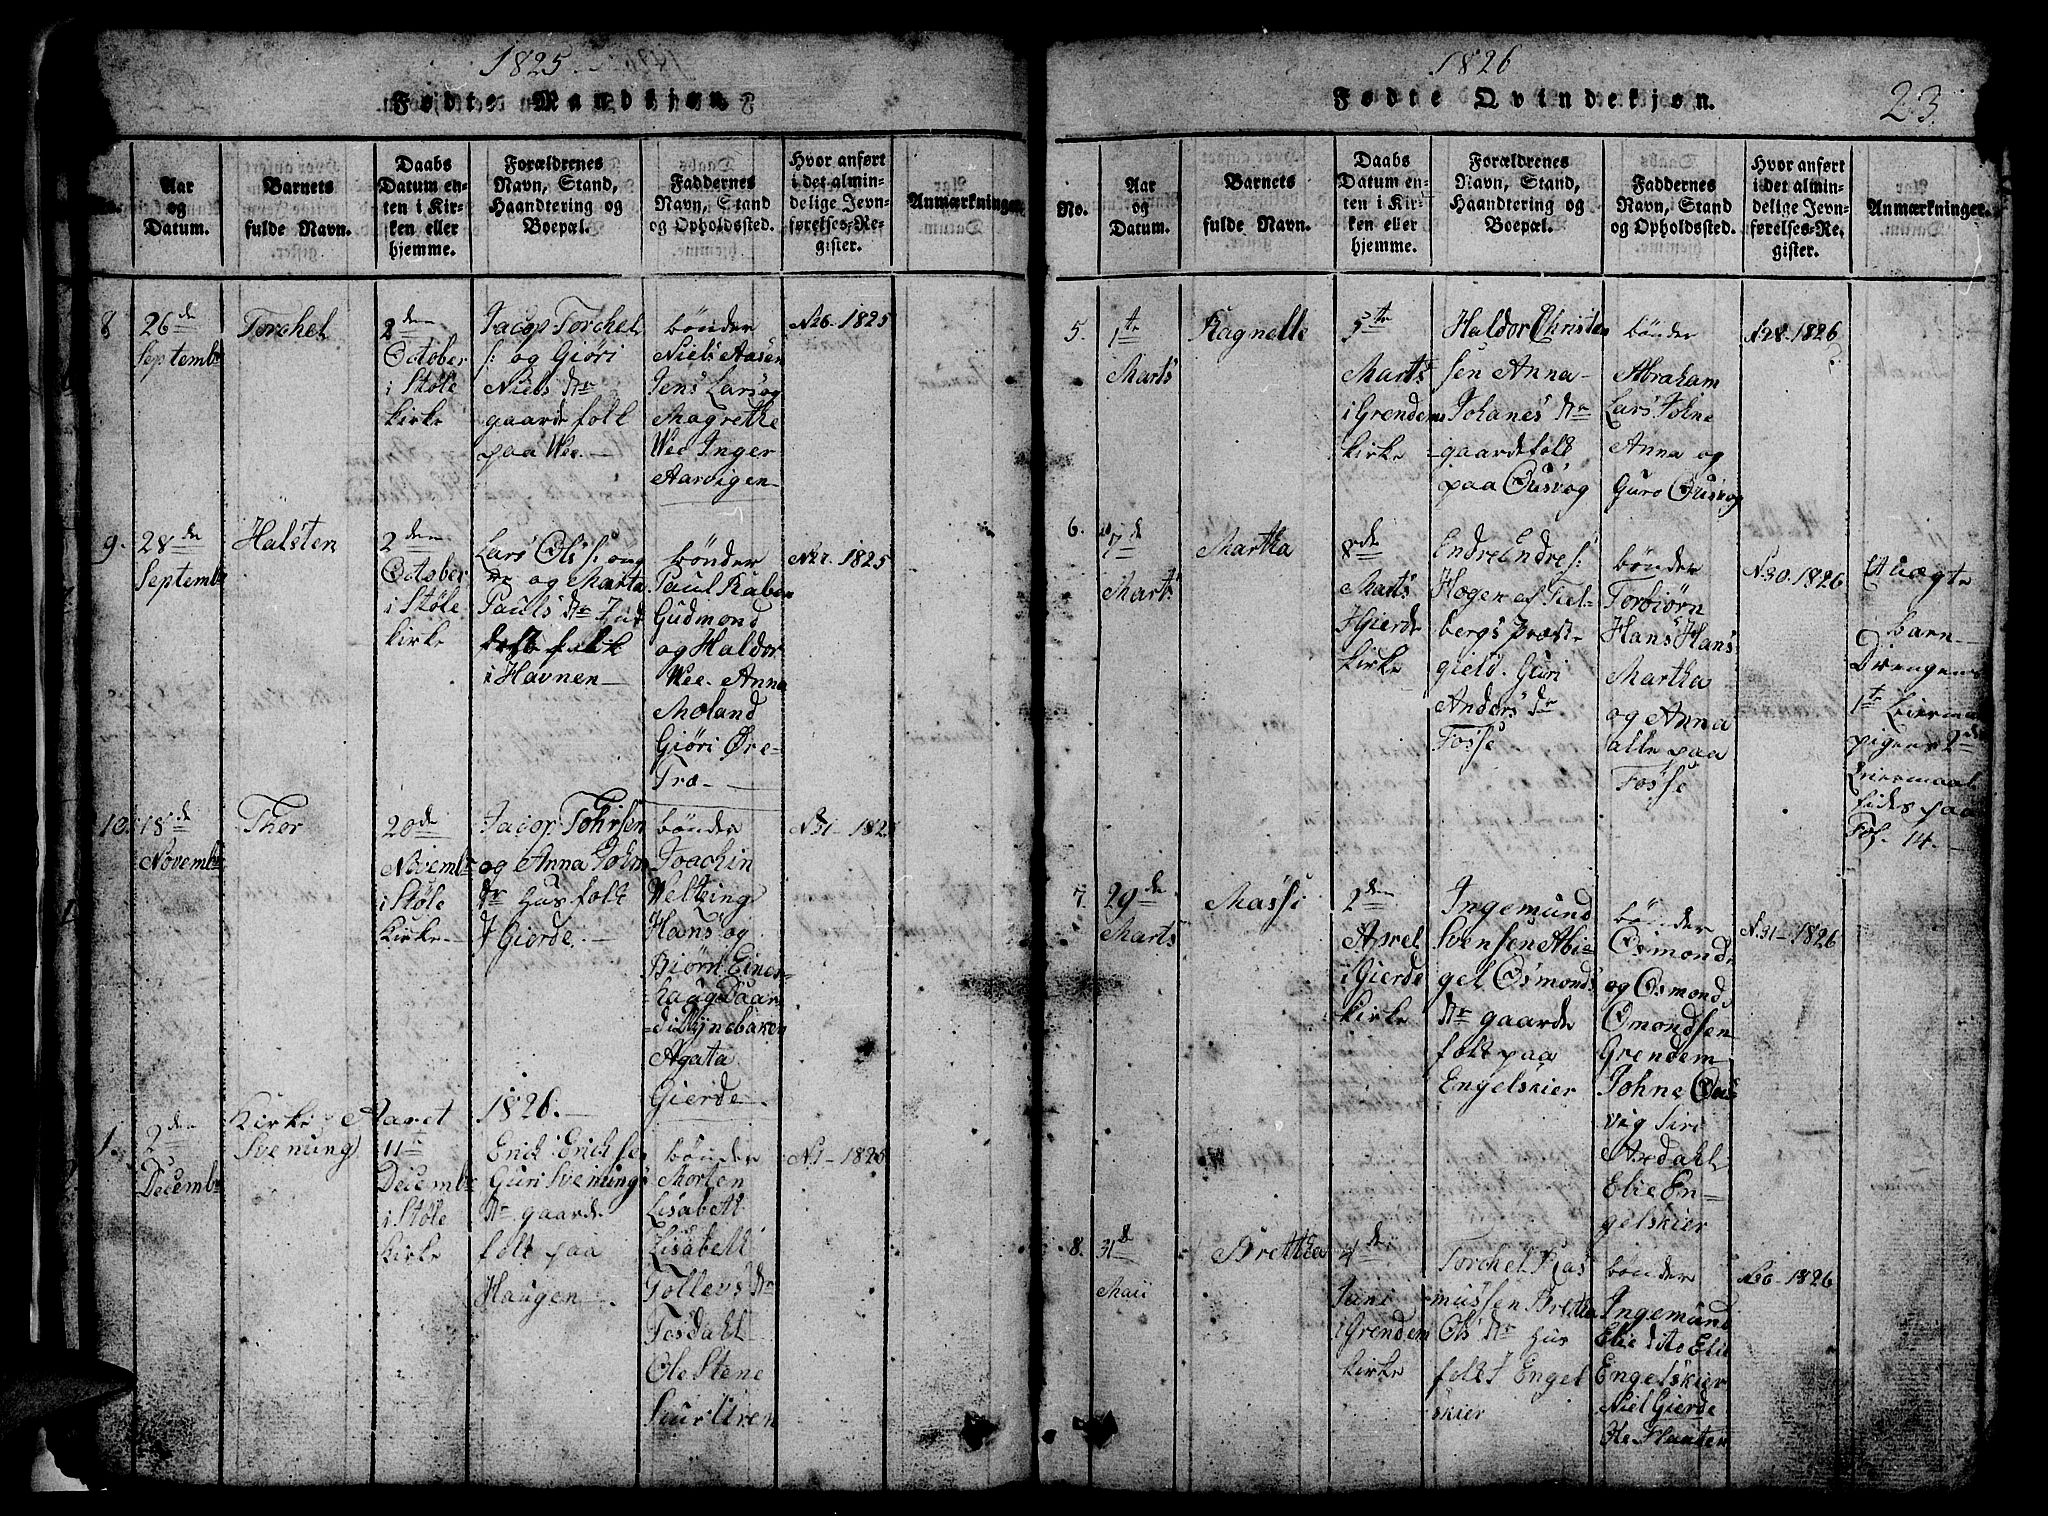 1825.
Fødte Mandkjøn
Aar
og
Datum.
Barnets
fulde Navn.
Daabs
Datum en-
ten i Kir-
ken eller
hjemme.
Forældrenes
Navn, Stand,
Haandtering og
Boepæl.
Faddernes
Navn, Stand
og Opholdssted.
Hvor anført
i det almin-
delige Jevn-
førelses-Re-
gister.
Anmærkninger.
8
26de
Septembr
Torchel
2den
October
i Støle
kirke
Jacop Torchel
s: og Giöri
Niels Dr
gaarde folk
paa Wee.
bönder
Niels Aasen
Jens Lars og
Magrethe
Wee Inger
Aarvigen
N26. 1825
9.
28de
Septembr
Halsten
2den
October
i Støle
kirke
Lars Ols s: ong
og Marta
Pauls Dr
folk
i Havnen
bönder
Paul Raben
Gudmond
og Haldor
Wee. Anna
Moland
Giöri Øre-
Træ
1825
10.
18de
Novembr
Thor
20de
Novembr
i Støle
kirke
Jacop Tohrsen
og Anna John
Dr hus folk
I Gierde.
bönder
Joachin
Weltzing
Hans og
Biörn Eines-
haug
Agata
Gierde.
N31- 182
Kirke-Aaret 1826.
1.
2den
Decembr
Svenung
11te
Decembr
i Støle
kirke
Erick Erickse
Guri Svenungs
Dr gaarde
folk paa
Haugen
bönder
Morten
Lisabett
Lisabett
Tollevs Dr
Tosdahl
Ole Stene
Siur Uren
N1- 1825
1826
Fødte Qvindekjøn.
23.
No.
Aar
og
Datum.
Barnets
fulde Navn.
Daabs
Datum en-
ten i Kir-
ken eller
hjemme.
Forældrenes
Navn, Stand,
Haandtering og
Boepæl.
Faddernes
Navn, Stand
og Opholdssted.
Hvor anført
i det almin-
delige Jevn-
førelses-Re-
gister.
Anmærkninger.
5.
1te
Marts
Ragnelle
5te
Marts
i Grendem
kirke
Haldor Christen
sen Anna
Johanes Dr
gaardefolk
paa Øusvog
bönder
Abraham
Lars Johne
Anna og
Guro Øusvog
N28. 1826
6.
7de
Marts
Martha
8de
Marts
I Gierde
kirke
Endre Endre s:
Hogen af Fiel-
bergs Præste
gield. Guri
Anders Dr
Fosse
bönder
Torbiörn
Hans Hans
Martha
og Anna
alle paa
Fosse
N30. 1826
Uægte
barn
Drengens
1te Leiermaal
pigens 2de
Leiermaal
findes paa
Fol. 14.
7.
29de
Marts
Massi
2den
Aprel
i Gierde
kirke
Ingemund
Svensen Abie-
gel Osmonds
Dr gaarde
folk paa
Engelskier
bönder
Osmond
og Osmond
Omondsen
Grendem
Johne Øus
vig Siri
Axdahl
Elie En-
gelskier
N31- 1826
8.
31de
Maii
Brettha
4de
Juni
i Grendem
kirke
Torchel Ras
mussen Bretha
Ols Dr hus
folk I Engel
skier
bönder
Ingemund
Elie dito Elie
Engelskier
Niel Gierde
Ole Flaaten
1826